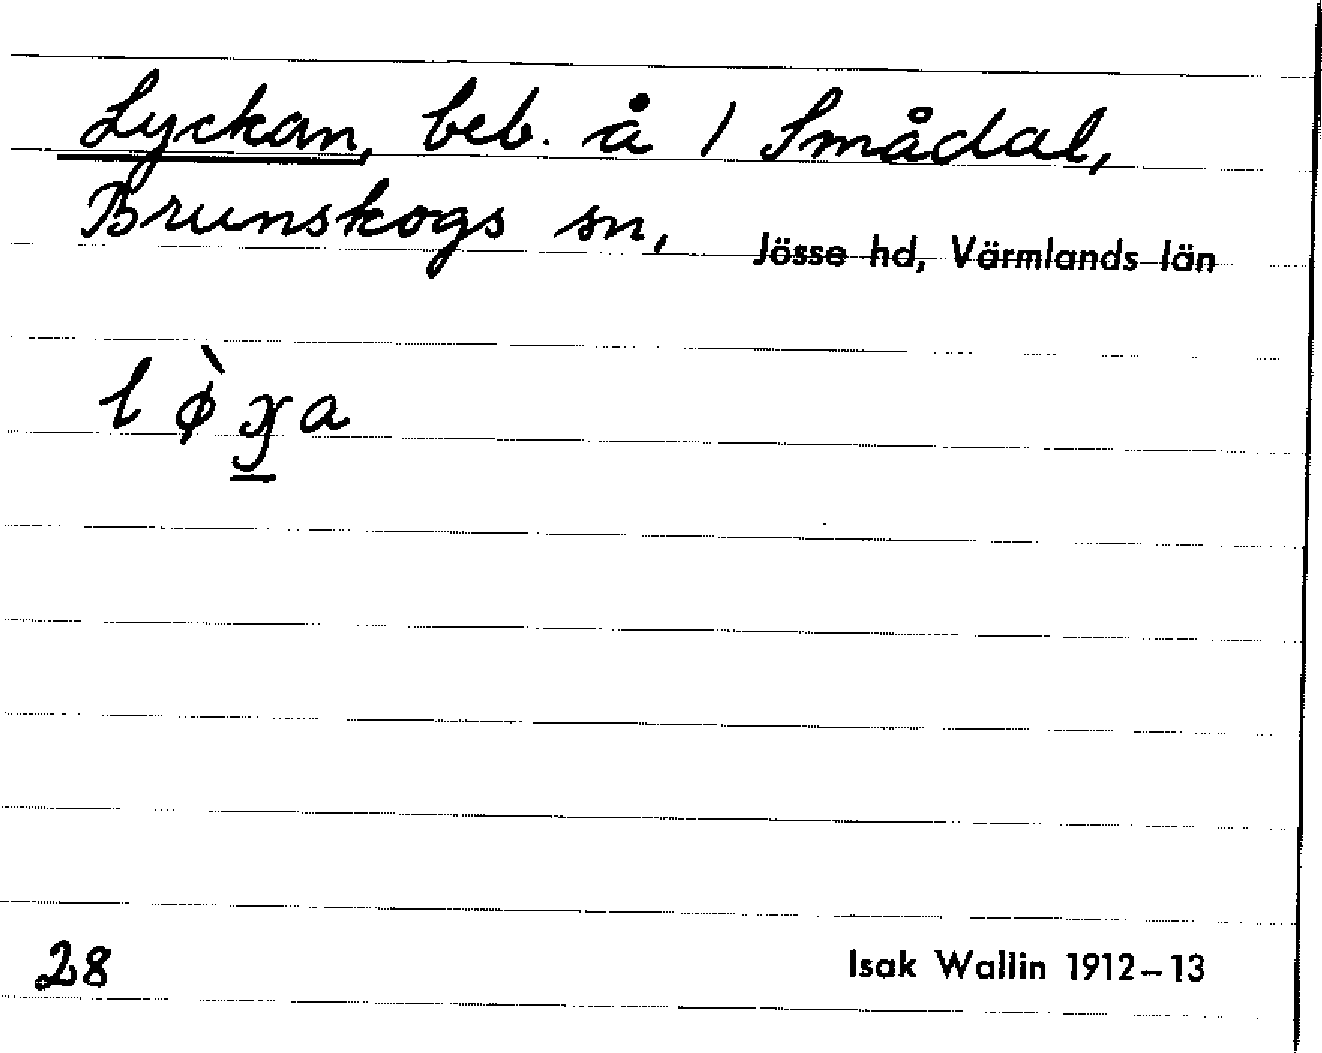 Lyckan, beb. å 1 Smådal,
Brunskogs sn, Jösse hd, Värmlands län
28
Isak Wallin 1912–13